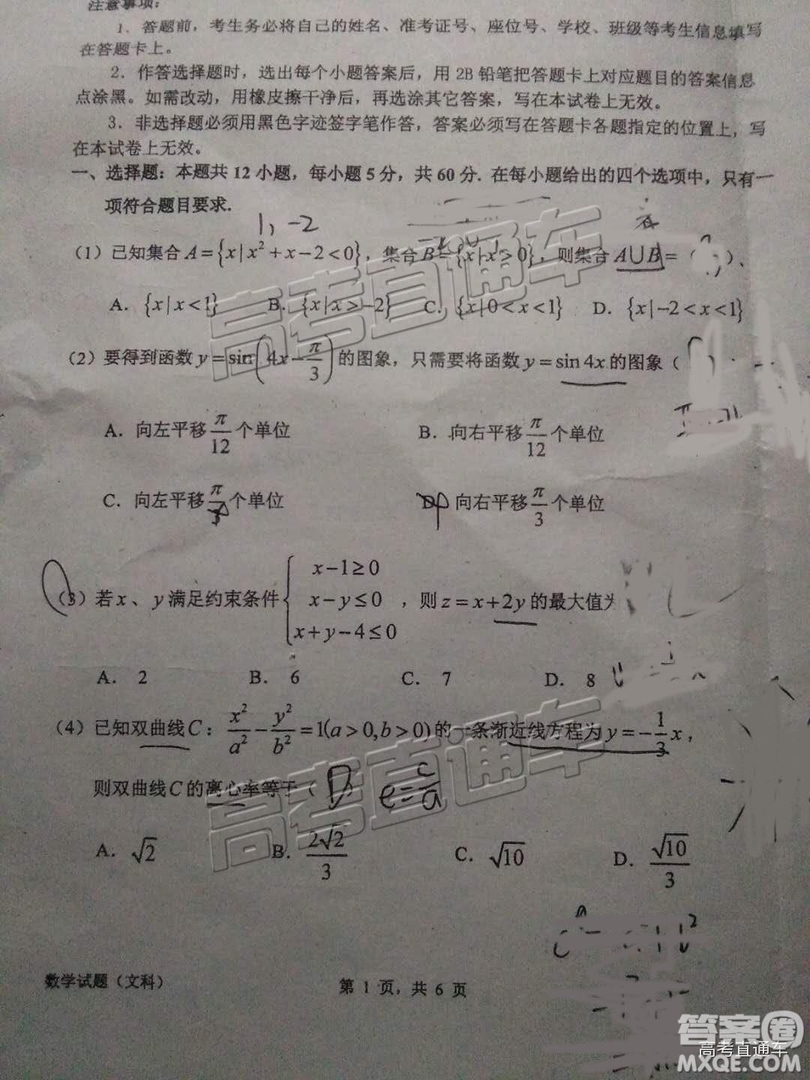 注意事项:
1. 答题前，考生务必将自己的姓名、准考证号、座位号、学校、班级等考生信息填写
在答题卡上。
2. 作答选择题时，选出每个小题答案后，用 2B 铅笔把答题卡上对应题目的答案信息
点涂黑。如需改动，用橡皮擦干净后，再选涂其它答案，写在本试卷上无效。
3. 非选择题必须用黑色字迹签字笔作答，答案必须写在答题卡各题指定的位置上，写
在本试卷上无效。
一、选择题：本题共 12 小题，每小题 5 分，共 60 分. 在每小题给出的四个选项中，只有一
项符合题目要求.
1, -2
(1) 已知集合 A={x|x²+x-2<0}，集合 B={x|x>0}，则集合 A∪B=（ ）、
A. {x|x<1} B. {x|x>-2} C. {x|0<x<1} D. {x|-2<x<1}
(2) 要得到函数 y=sin(4x-π/3) 的图象，只需要将函数 y=sin4x 的图象（
A. 向左平移 π/12 个单位 B. 向右平移 π/12 个单位
C. 向左平移 π/3 个单位 D. 向右平移 π/3 个单位
(3) 若 x、y 满足约束条件 { x-1≥0
x-y≤0
x+y-4≤0 ，则 z=x+2y 的最大值为
A. 2 B. 6 C. 7 D. 8
(4) 已知双曲线 C：x²/a²-y²/b²=1(a>0,b>0) 的一条渐近线方程为 y=-1/3x，
则双曲线 C 的离心率等于（ D ） e=c/a
A. √2 B. 2√2/3 C. √10 D. √10/3
数学试题（文科） 第 1 页，共 6 页
高考直通车
高考直通车
答案圈
高考直通车
MXQE.COM